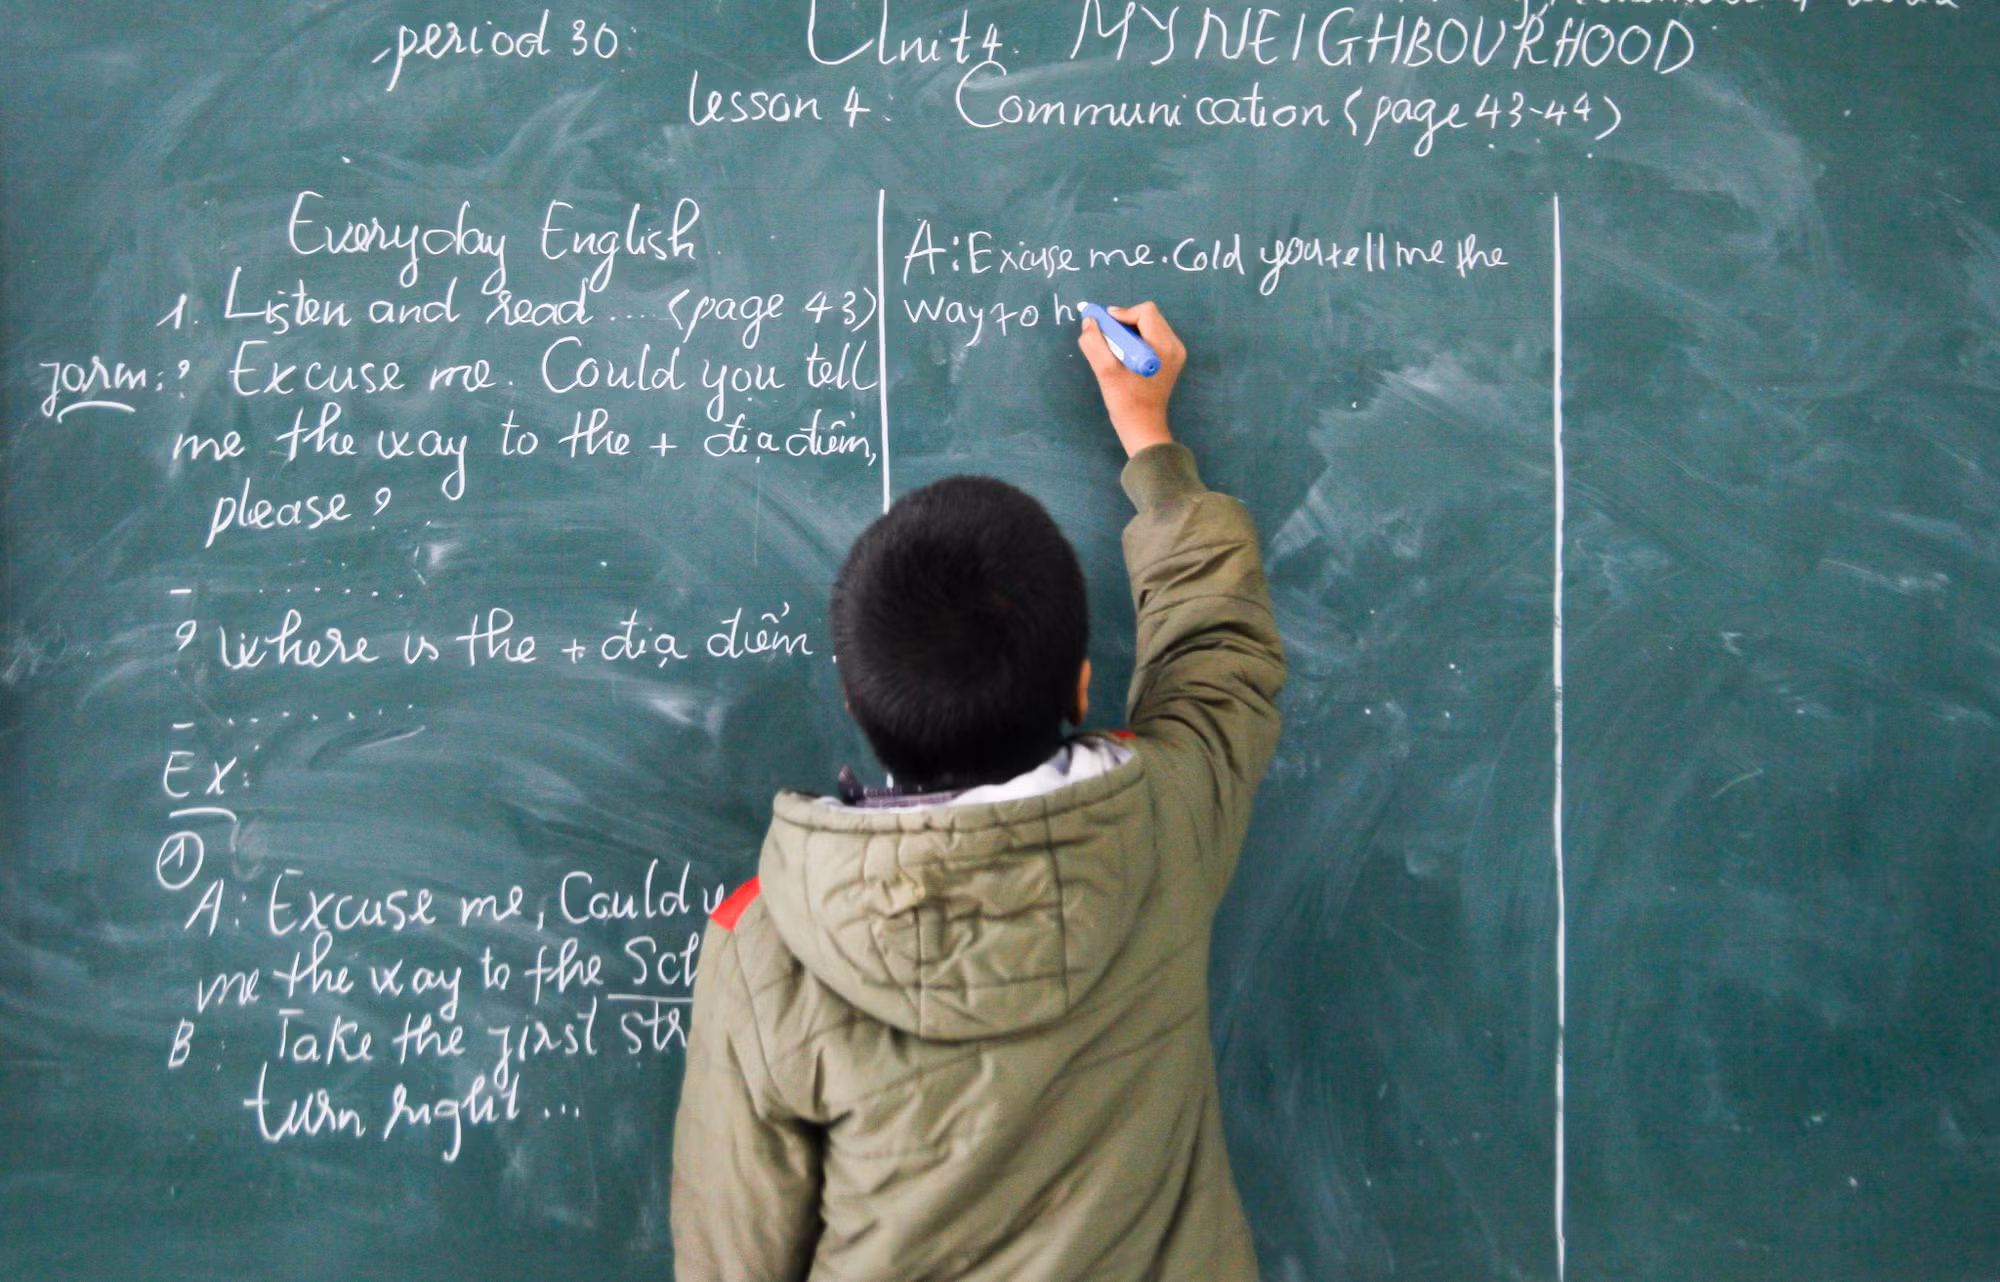 period 30:
Unit 4. MY NEIGHBOURHOOD
Lesson 4: Communication (page 43-44)
Everyday English.
1. Listen and read... (page 43)
form: ? Excuse me. Could you tell
me the way to the + địa điểm,
please?
- .......
? Where is the + địa điểm
- .......
Ex:
①
A: Excuse me, Could
me the way to the
B: Take the first
turn right...
A: Excuse me. Cold you tell me the
way to